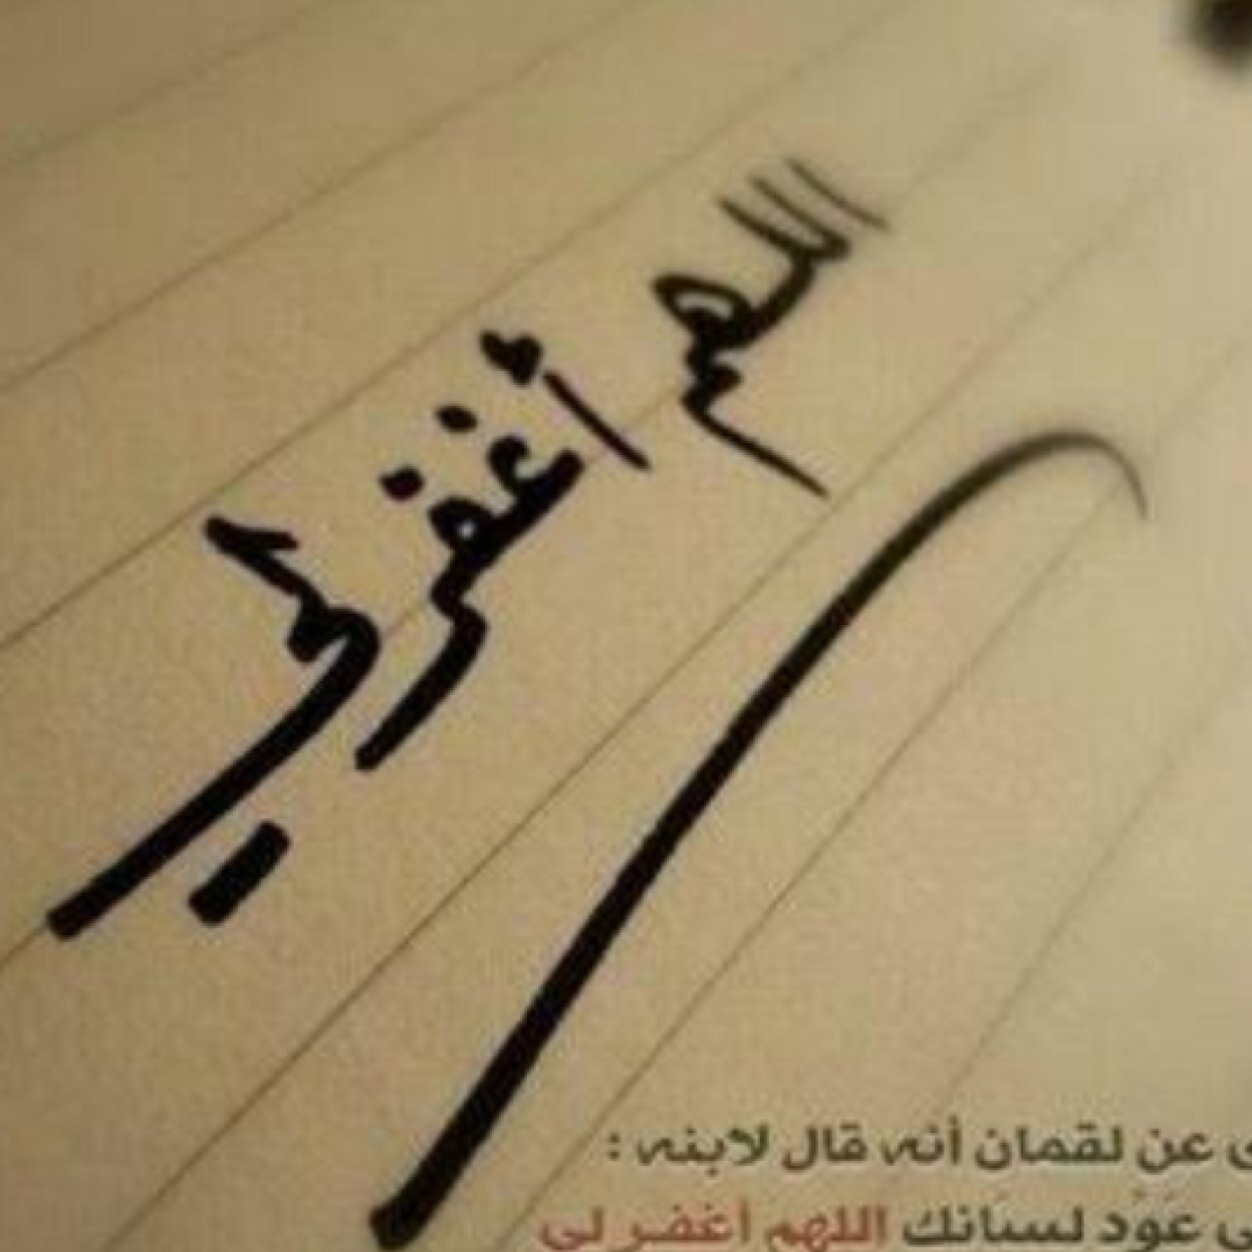 اللهم أغفر لي
عن لقمان أنه قال لابنه :
عَوِّد لسانك اللهم أغفر لي